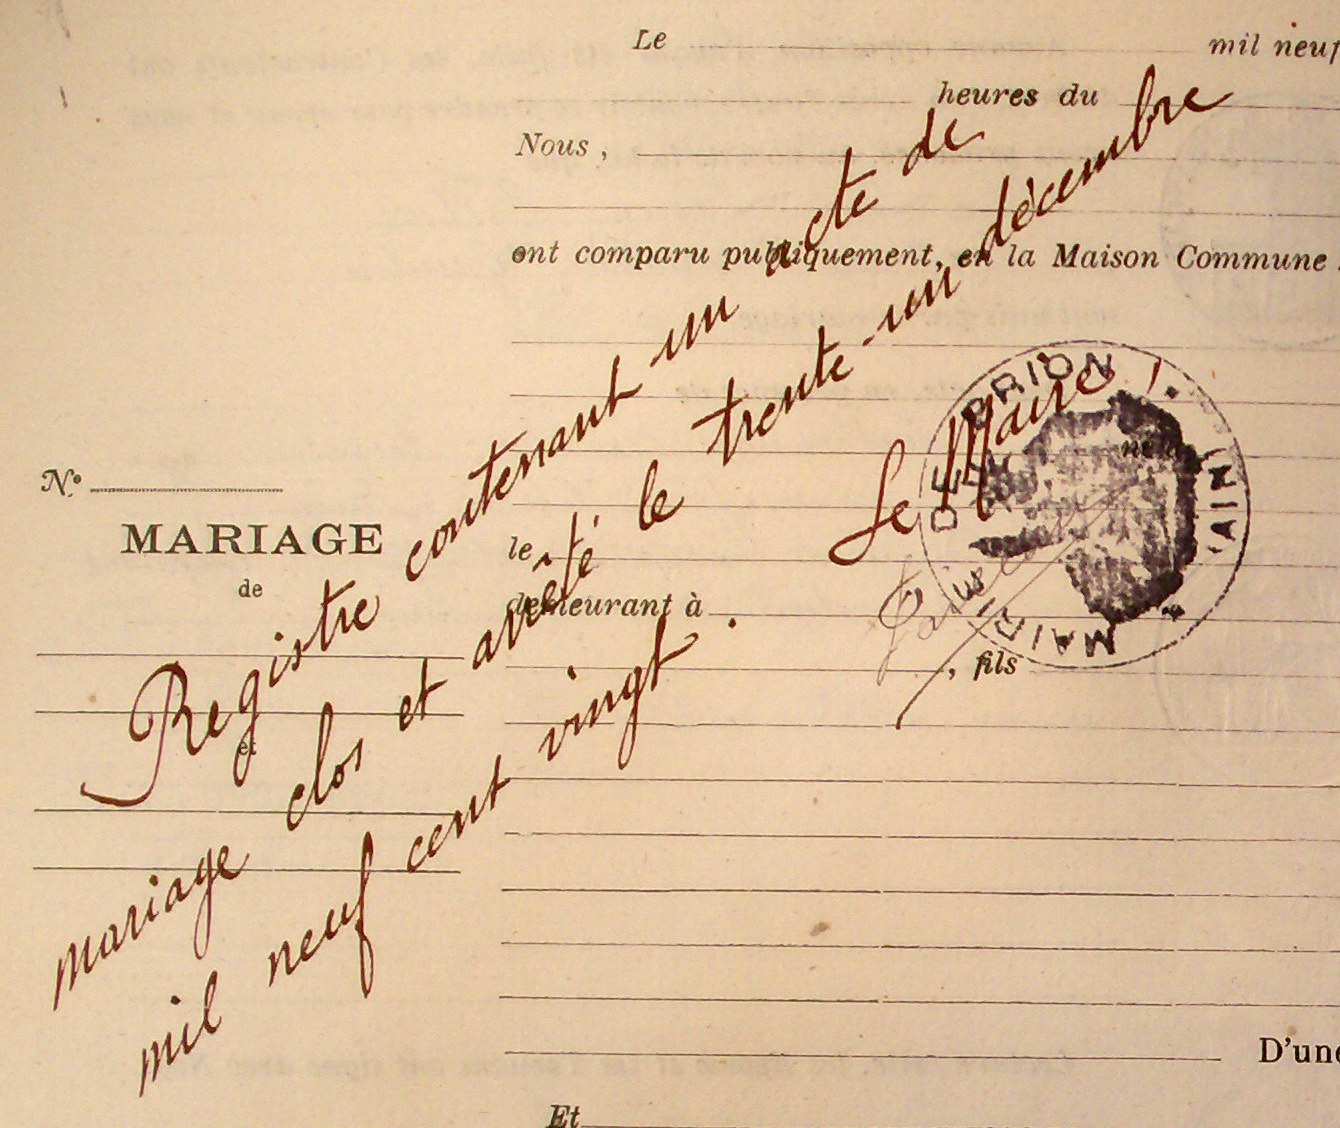 Le mil neuf
heures du
Nous,
ont comparu publiquement, en la Maison Commune
né
N°
MARIAGE
de
et
le
demeurant à
, fils
D'une
Et
Registre contenant un acte de
mariage clos et arrêté le trente-un décembre
mil neuf cent vingt.
Le Maire
MAIRIE DE BRION (AIN)